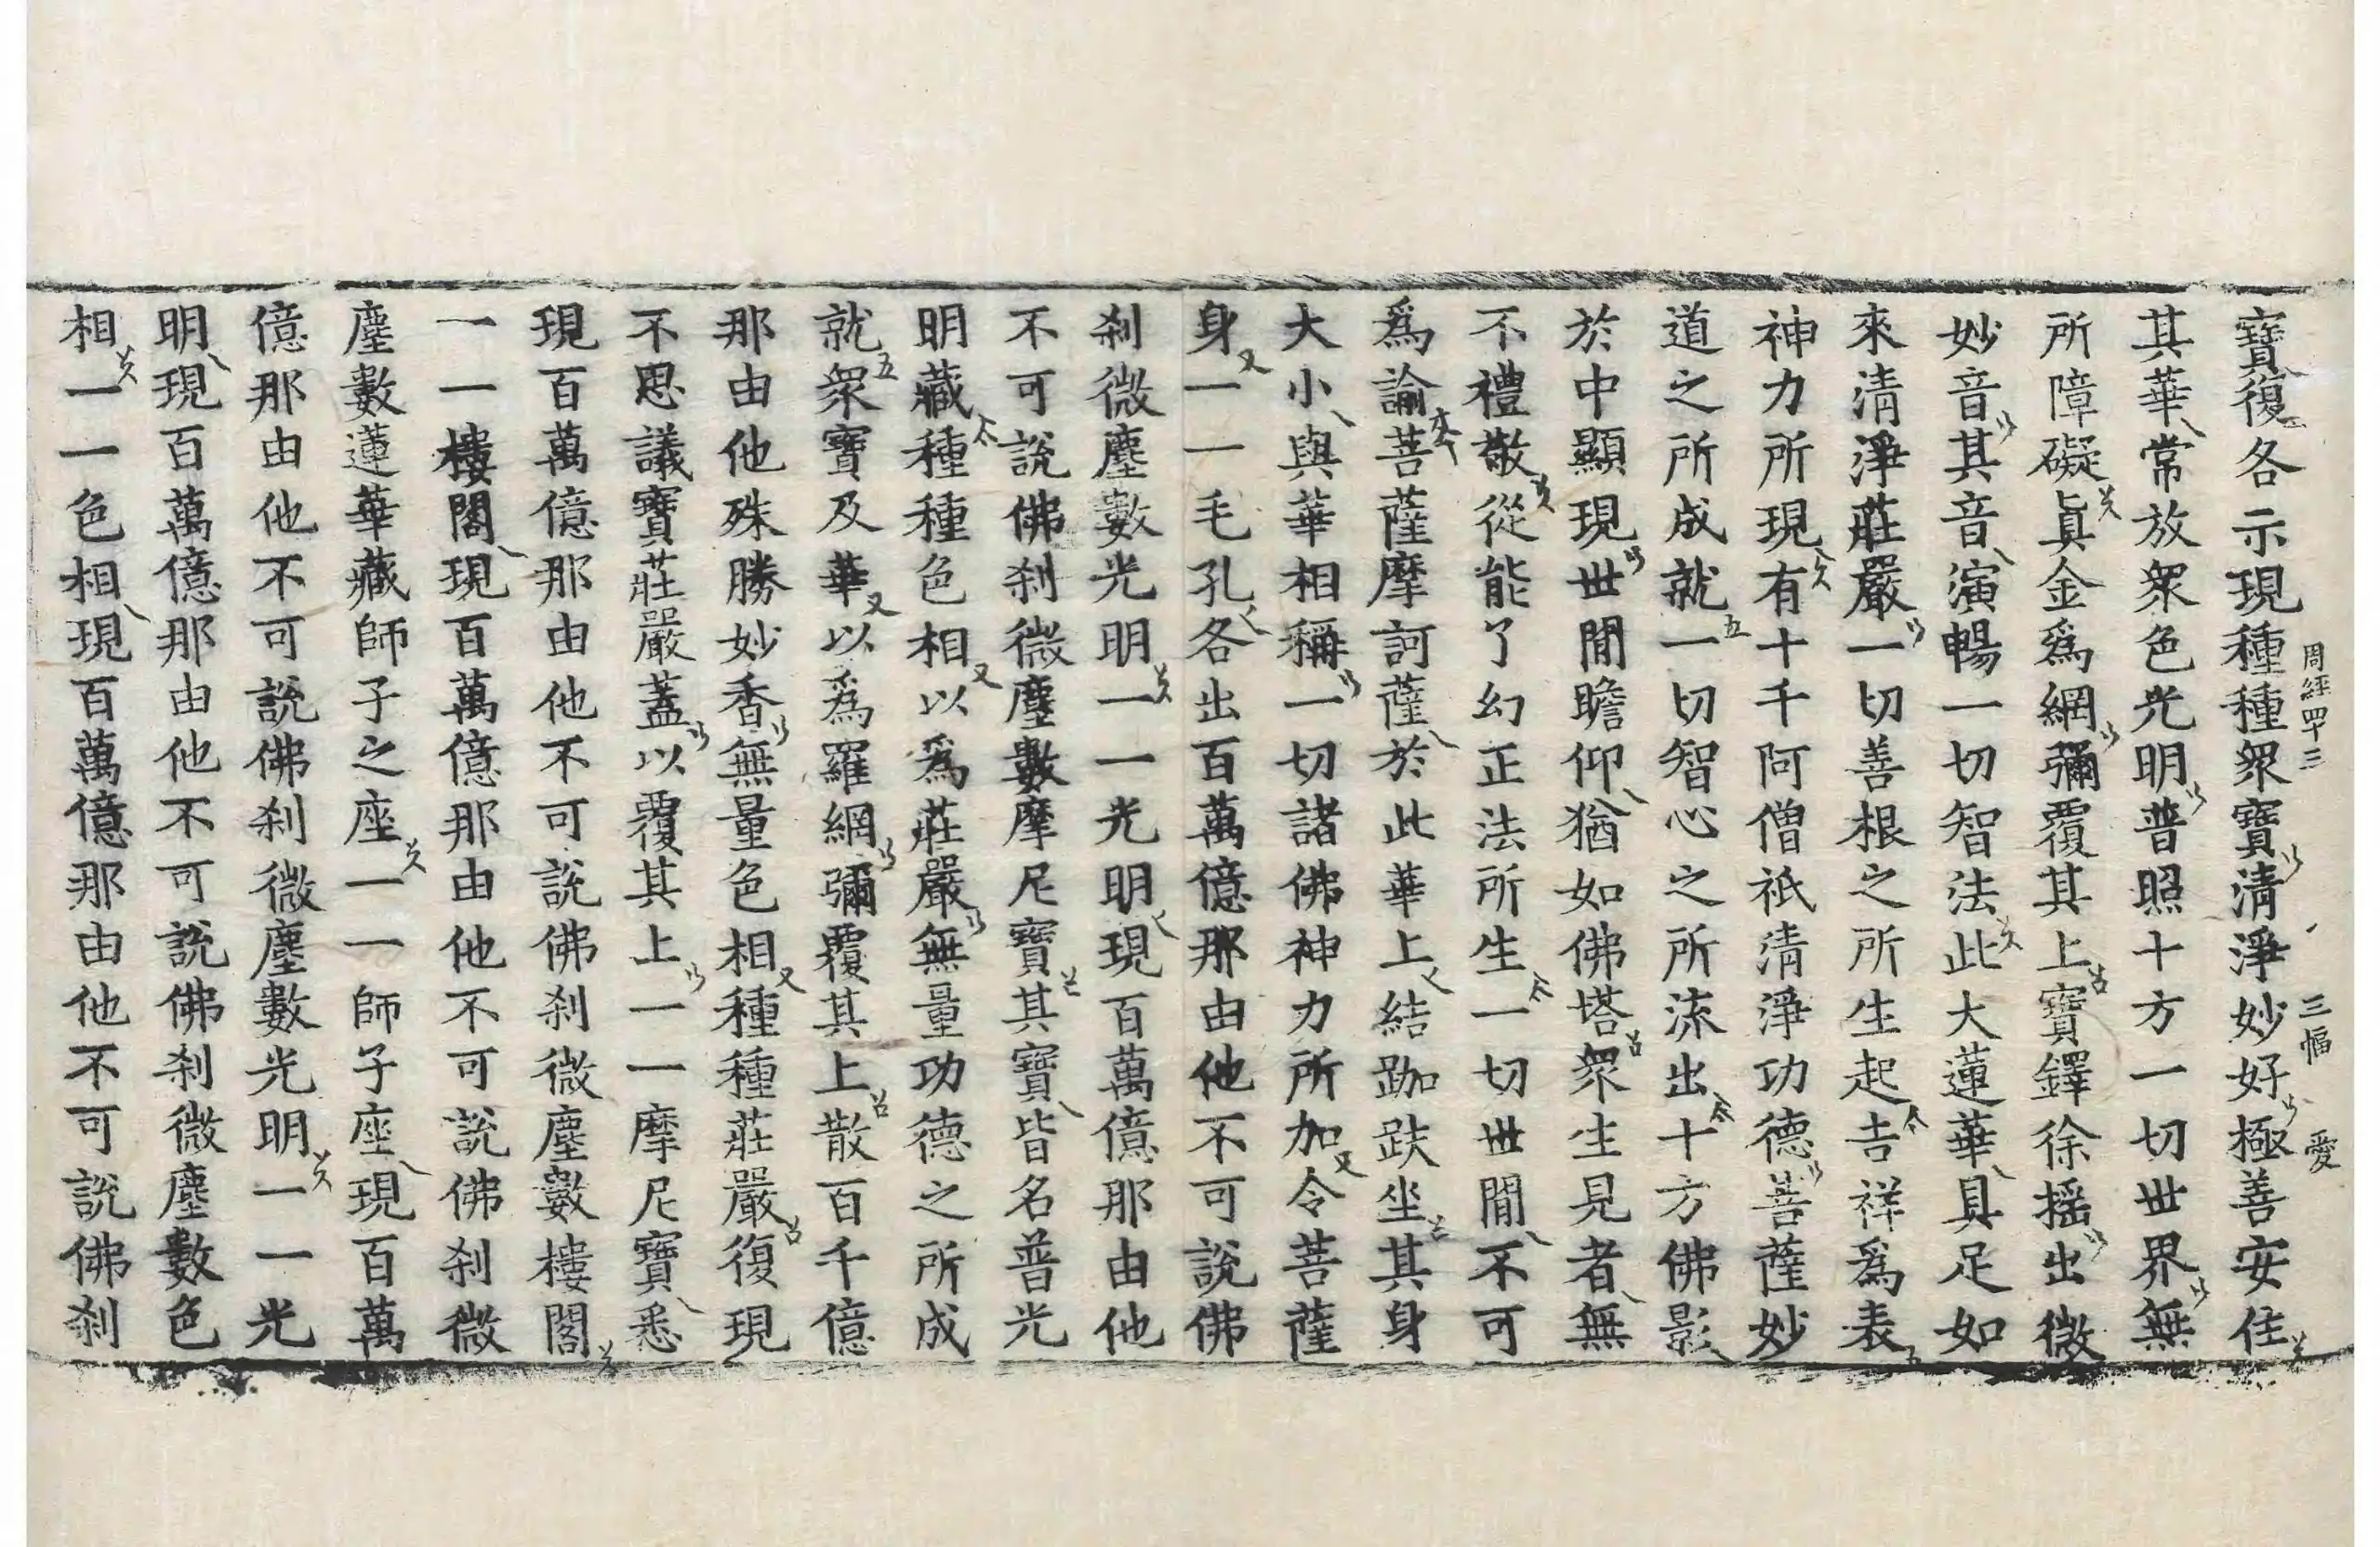 寶復各示現種種衆寶淸淨妙好極善安住
周經四十三　三幅　愛
其華常放衆色光明普照十方一切世界無
所障礙眞金爲網彌覆其上寶鐸徐搖出微
妙音其音演暢一切智法此大蓮華具足如
來淸淨莊嚴一切善根之所生起吉祥爲表
神力所現有十千阿僧祇淸淨功德菩薩妙
道之所成就一切智心之所流出十方佛影
於中顯現世間瞻仰猶如佛塔衆生見者無
不禮敬從能了幻正法所生一切世間不可
爲諭菩薩摩訶薩於此華上結跏趺坐其身
大小與華相稱一切諸佛神力所加令菩薩
身一一毛孔各出百萬億那由他不可說佛
刹微塵數光明一一光明現百萬億那由他
不可說佛刹微塵數摩尼寶其寶皆名普光
明藏種種色相以爲莊嚴無量功德之所成
就衆寶及華以爲羅網彌覆其上散百千億
那由他殊勝妙香無量色相種種莊嚴復現
不思議寶莊嚴蓋以覆其上一一摩尼寶悉
現百萬億那由他不可說佛刹微塵數樓閣
一一樓閣現百萬億那由他不可說佛刹微
塵數蓮華藏師子之座一一師子座現百萬
億那由他不可說佛刹微塵數光明一一光
明現百萬億那由他不可說佛刹微塵數色
相一一色相現百萬億那由他不可說佛刹